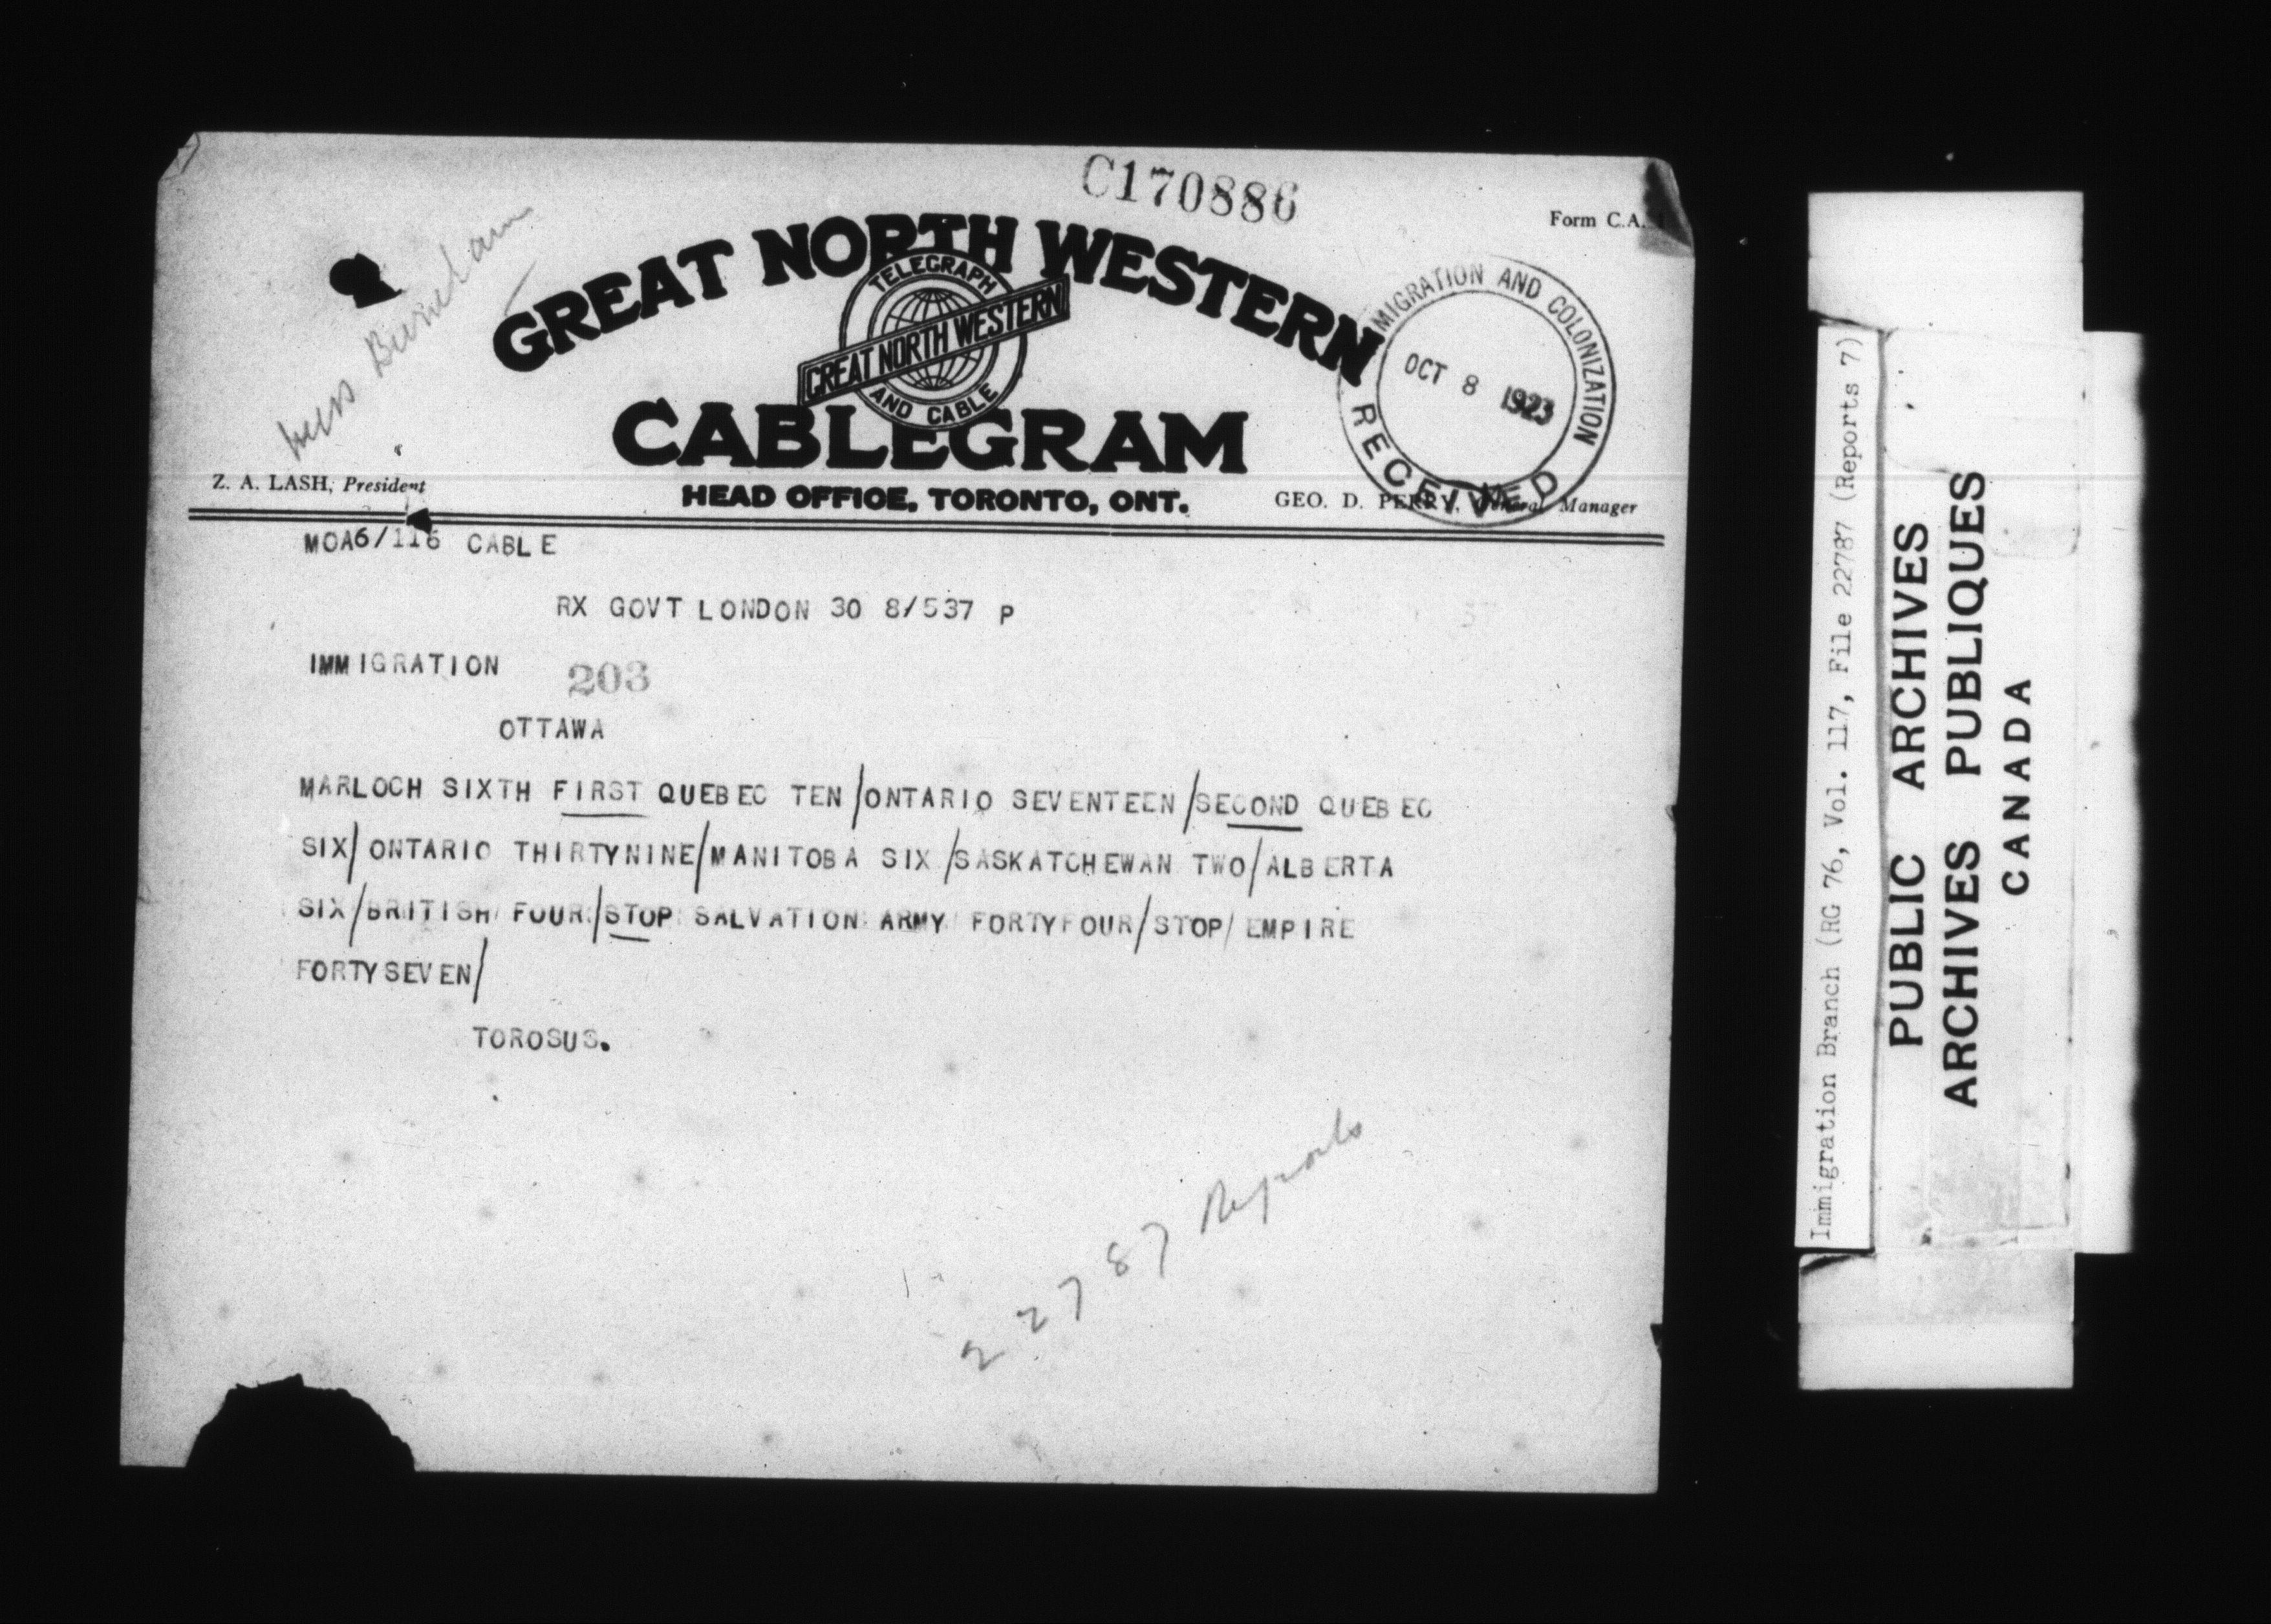 C170886
Form C.A.
GREAT NORTH WESTERN
TELEGRAPH
GREAT NORTH WESTERN
AND CABLE
CABLEGRAM
HEAD OFFICE, TORONTO, ONT.
Z. A. LASH, President
GEO. D. PERRY, General Manager
MIGRATION AND COLONIZATION
OCT 8 1923
RECEIVED
MOA6/116 CABLE
RX GOVT LONDON 30 8/537 P
IMMIGRATION 203
OTTAWA
MARLOCH SIXTH FIRST QUEBEC TEN/ONTARIO SEVENTEEN/SECOND QUEBEC
SIX/ONTARIO THIRTYNINE/MANITOBA SIX/SASKATCHEWAN TWO/ALBERTA
SIX/BRITISH FOUR/STOP SALVATION ARMY FORTYFOUR/STOP/EMPIRE
FORTYSEVEN/
TOROSUS.
22787 Reports
Immigration Branch (RG 76, Vol. 117, File 22787 (Reports 7)
PUBLIC ARCHIVES
ARCHIVES PUBLIQUES
CANADA